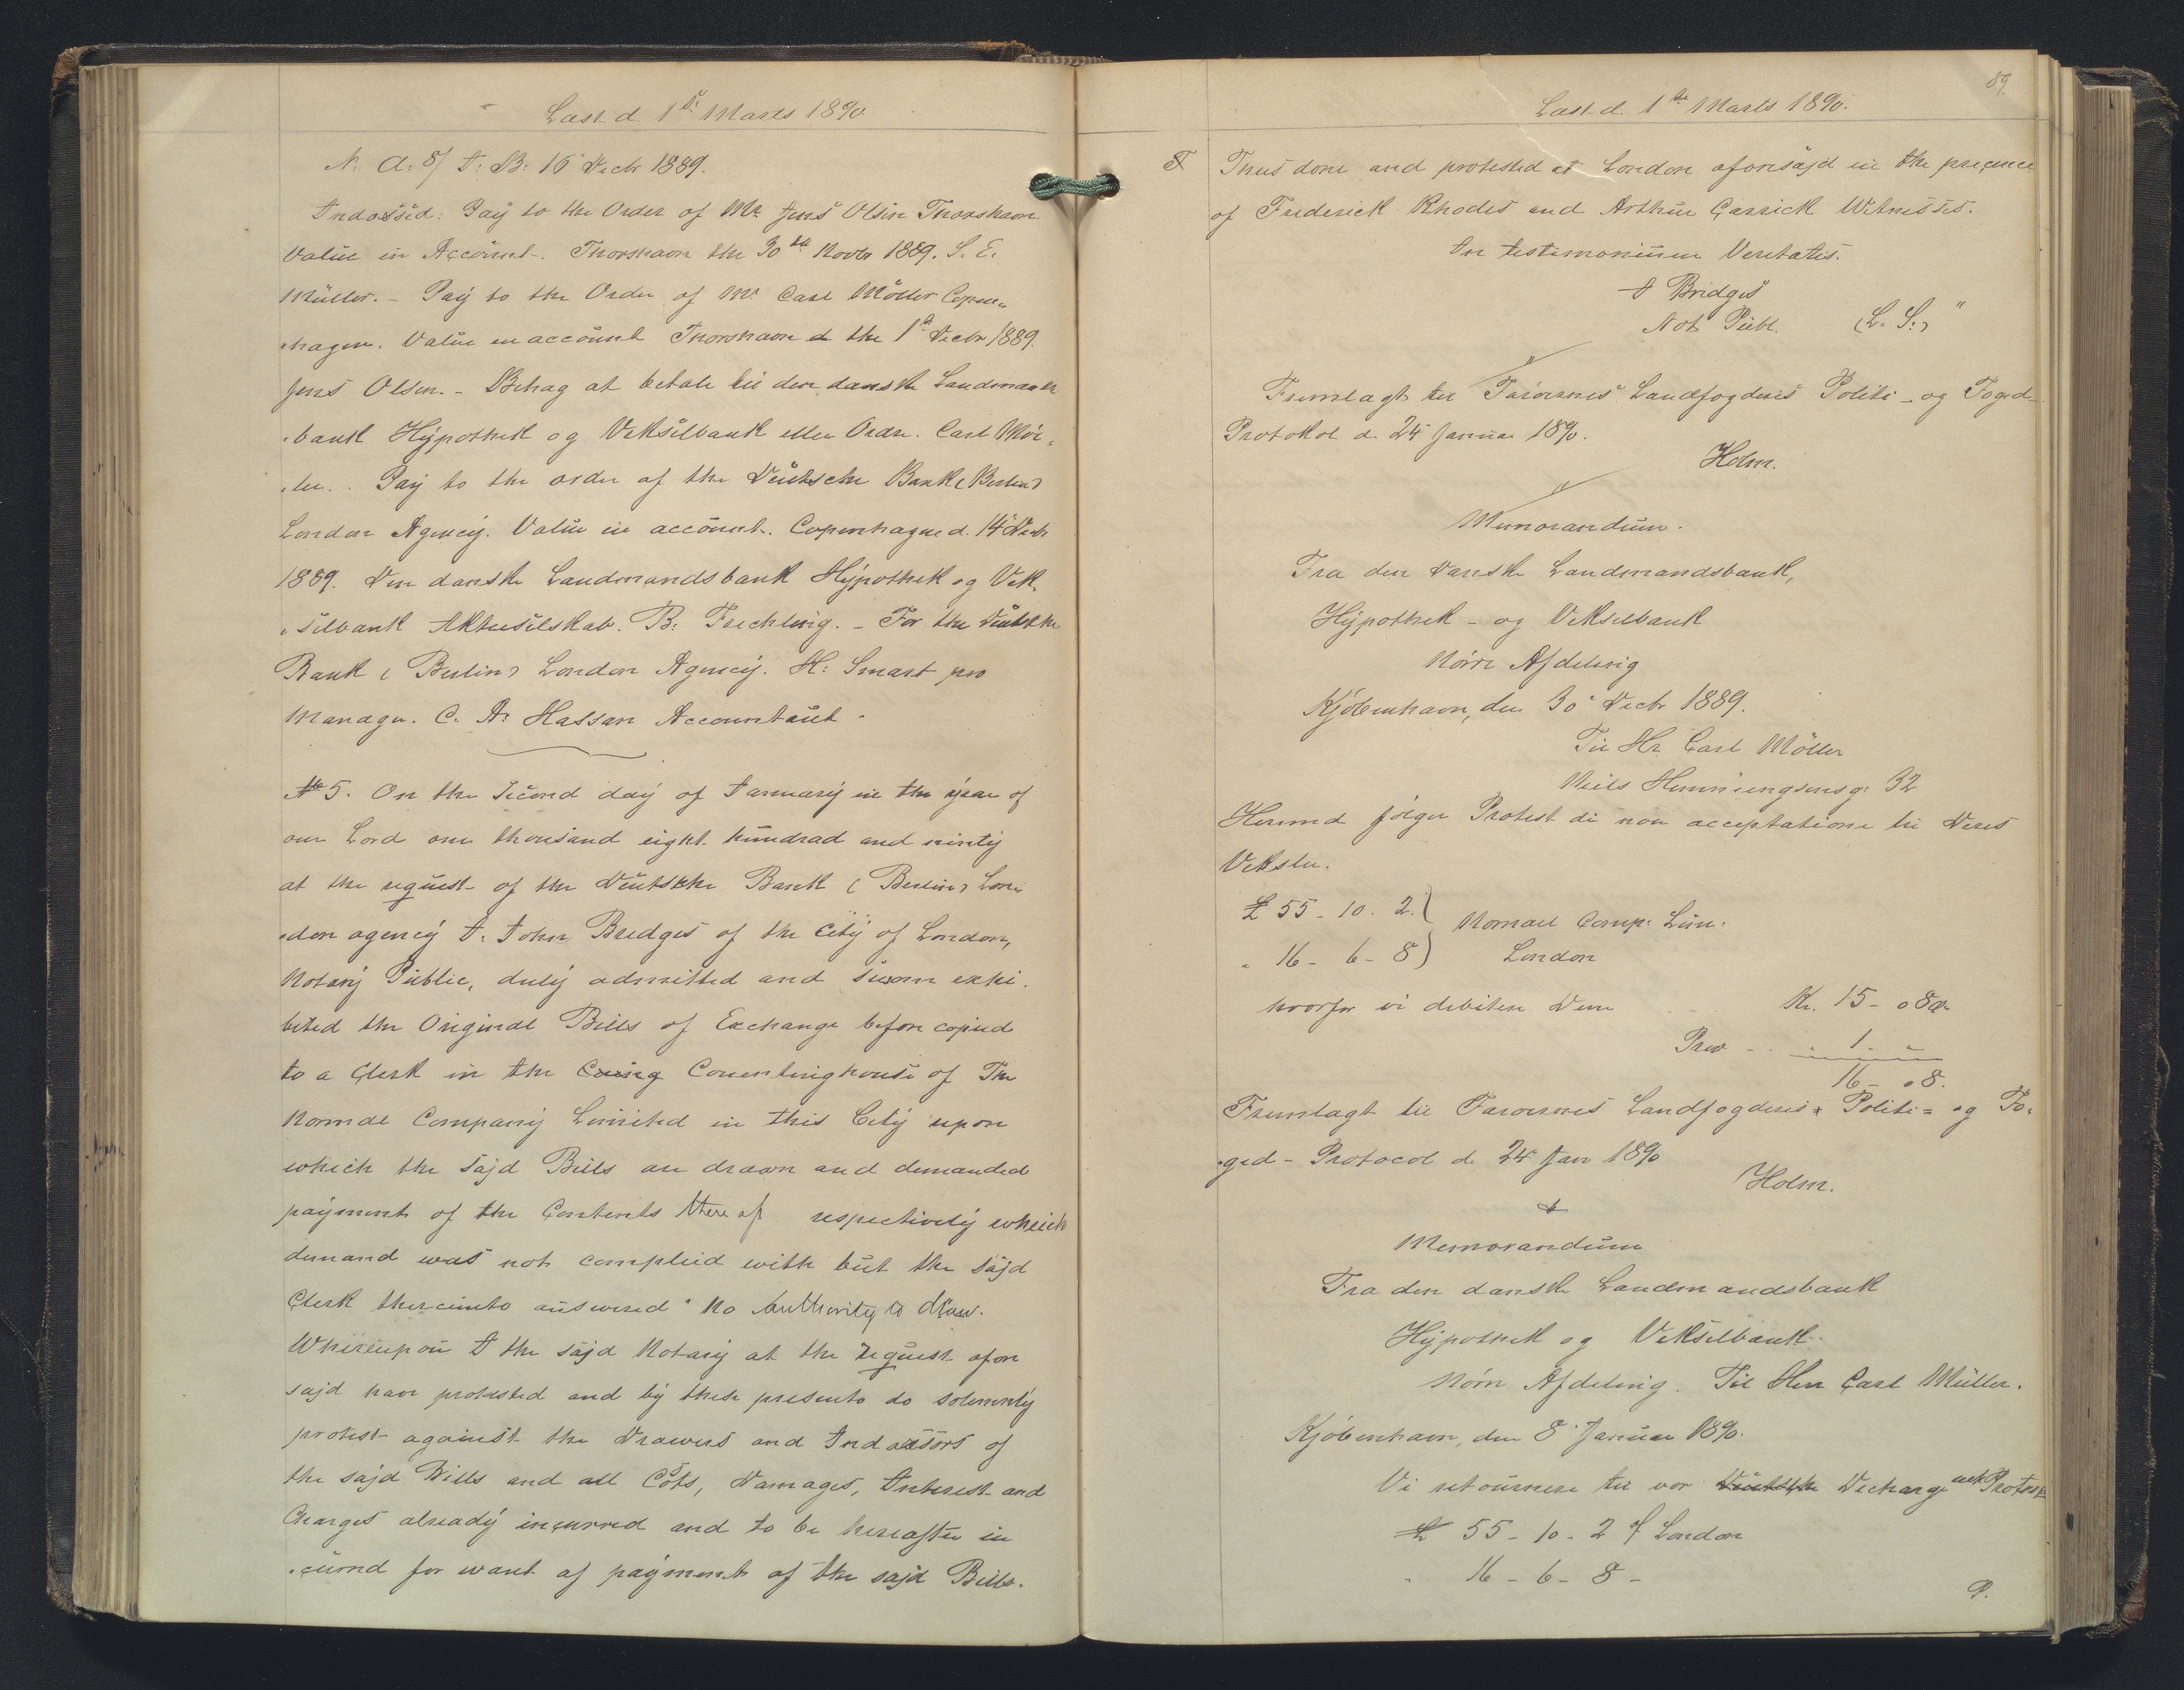 Læst d. 1ste Marts 1890.
N. A. 8/ I. B. 16 Decbr 1889.
Indossed: Pay to the Order of Mr. Jens Olsen Thorshavn
Value in Account. Thorshavn the 30th Novbr 1889. S. E.
Müller. - Pay to the Order of Mr. Carl Möller Copen„
„hagen. Value en account Thorshavn d the 1st Decbr 1889.
Jens Olsen. - Behag at betale til den danske Landmands
„bank Hypothek og Vekselbank eller Ordre. Carl Möl„
„ler. Pay to the order of the Deutsche Bank (Berlin)
London Agency. Value in account. Copenhague d. 14 Decbr
1889. Den danske Landmandsbank Hypothek og Vek„
„selbank Aktieselskab. B. Frechling. - For the Deutsche
Bank (Berlin) London Agency. H: Smart pro
Manager. C. A. Hassan Accountant.
№ 5. On the Second day of January in the year of
our Lord one thousand eight hundrad and ninty
at the request of the Deutsche Bank (Berlin) Lon„
„don agency I. John Bridges of the City of London,
Notary Public, duly admitted and sworn exhi„
bited the Original Bills of Exchange before copied
to a Clerk in the Couing Countinghouse of The
Normal Company Limited in this City upon
which the sajd Bills are drawn and demanded
payment of the Contents there of respectively which
demand was not complied with but the sajd
Clerk thereunto answered "No Authority to draw.
Whereupon I the sajd Notary at the request afore
sajd have protested and by these presents do solemnly
protest against the Drawers and Indossors of
the sajd Bills and all Costs, Damages, Interest and
Charges already incurred and to be hereafter in
„curred for want of payment of the sajd Bills.
89.
Læst d. 1ste Marts 1890.
T Thus done and protested at London aforesajd in the precence
of Frederick Rhodes and Arthur Carrick Witnesses.
In testimonium Veritatis.
I Bridges
Not Publ. (L. S.)
Fremlagt til Færøernes Landfogderis Politi- og Foged-
Protokol d. 24 Januar 1890.
Holm.
Memorandum.
Fra den danske Landmandsbank,
Hypothek- og Vekselbank
Nörre Afdeling
Kjöbenhavn, den 30 Decbr 1889.
Til Hr. Carl Möller
Niels Hemmingsensg. 32
Hermed fölger Protest di non acceptatione til Deres
Veksler.
£ 55 - 10. 2. } Normal Comp. Lim.
„ 16 - 6 - 8 } London
hvorfor vi debitere Dem Kr. 15 - 08
Prov - . . 1. -
16 - 08.
Fremlagt til Færøernes Landfogderis Politi= og Fo„
„ged - Protocol d. 24 Jan 1890
Holm.
Memorandum
Fra den danske Landmandsbank
Hypothek og Vekselbank
Nörre Afdeling. Til Herr Carl Müller.
Kjöbenhavn, den 8 Januar 1890.
Vi retournere til vor Deutsche Decharge net Protest
£ 55 - 10 - 2 London
„ 16 - 6 - 8 -
P.